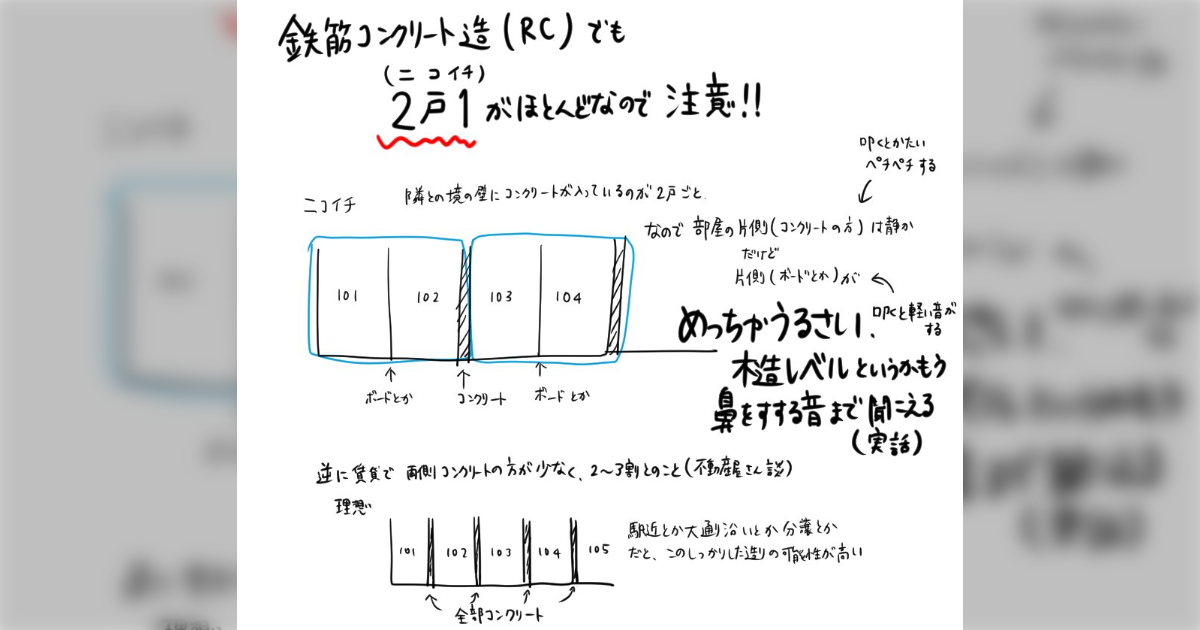 鉄筋コンクリート造(RC)でも
(ニコイチ)
2戸1がほとんどなので 注意!!
叩くとかたい
ペチペチする
ニコイチ
隣との境の壁にコンクリートが入っているのが2戸ごと.
なので 部屋の片側(コンクリートの方)は静か
だけど
片側(ボードとか)が
叩くと軽い音が
する
めっちゃうるさい、
木造レベルというかもう
鼻をすする音まで聞こえる
(実話)
101 102 103 104
ボードとか コンクリート ボードとか
逆に賃貸で 両側コンクリートの方が少なく、2〜3割とのこと(不動産屋さん談)
理想
駅近とか大通り沿いとか分譲とか
だと、このしっかりした造りの可能性が高い
101 102 103 104 105
全部コンクリート